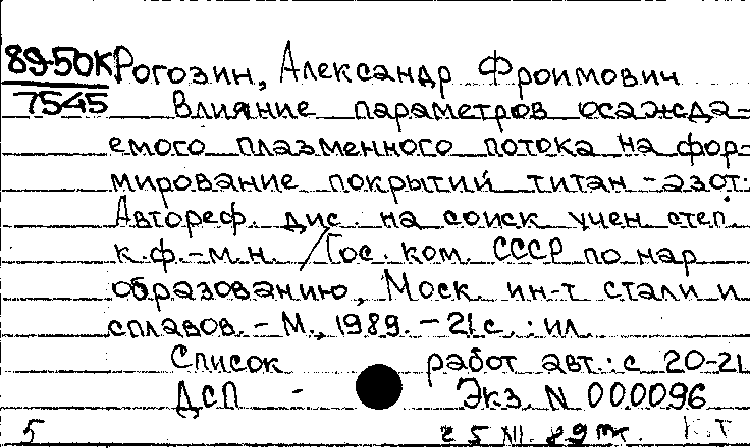 89-50К Рогозин, Александр Фроимович
7545 Влияние параметров осажда-
емого плазменного потока на фор-
мирование покрытий титан-азот:
Автореф. дис. на соиск учен степ.
к.ф.-м.н. /Гос. ком. СССР по нар
образованию, Моск. ин-т стали и
сплавов. - М., 1989. - 21 с. : ил.
Список работ авт.: с 20-21
ДСП - Экз. N 000096
5 25 XII. 89 К.Т